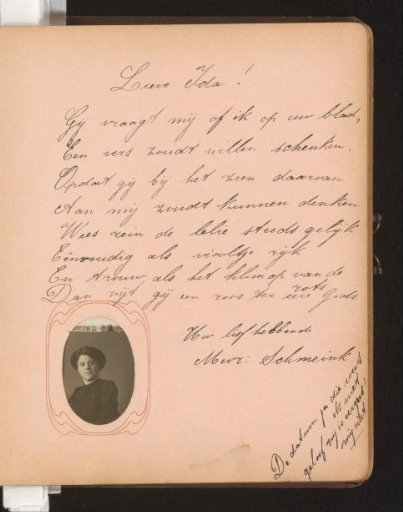 Lieve Ida!
Gij vraagt mij of ik op uw blad,
Een vers zoudt willen schenken.
Opdat gij bij het zien daarvan
Aan mij zoudt kunnen denken
Wees rein de lelie steeds gelijk
Eenvoudig als viooltje rijk
En trouw als het klimop van de rots
Dan zijt gij een roos ter eere Gods
Uw liefhebbende
Mevr: Schmeink
De datum ja die was
geloof mij is
mij niet